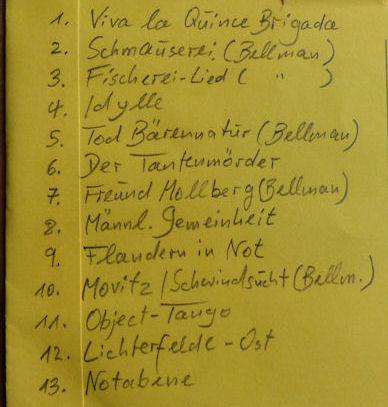 1. Viva la Quince Brigada
2. Schmauserei (Bellman)
3. Fischerei-Lied ( " )
4. Idylle
5. Tod Bärennatur (Bellman)
6. Der Tantenmörder
7. Freund Mollberg (Bellman)
8. Männl. Gemeinheit
9. Flandern in Not
10. Movitz / Schwindsucht (Bellm.)
11. Object-Tango
12. Lichterfelde-Ost
13. Notabene